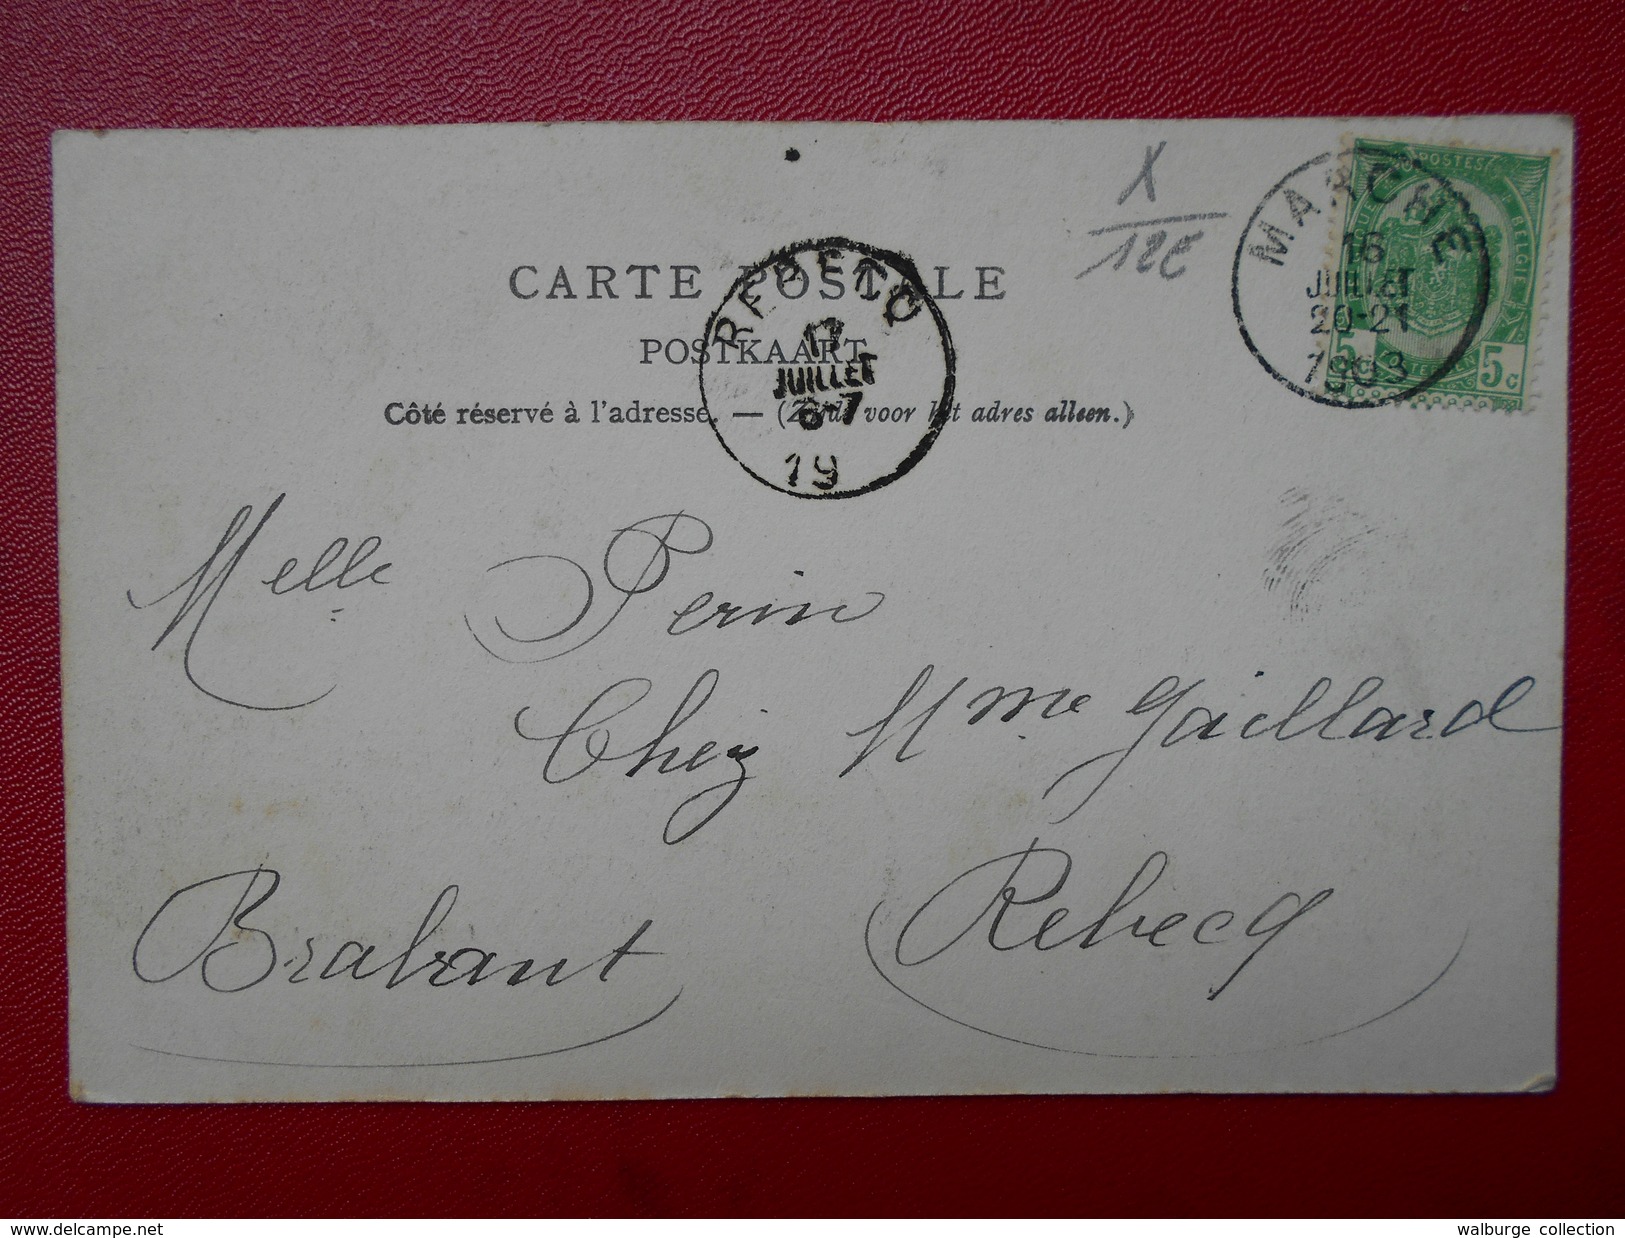 X
12€
POSTES
BELGIE
5
5c
MARCHE
16
JUILLET
20-21
1903
CARTE POSTALE
POSTKAART
Côté réservé à l'adresse. — (Zijde voor het adres alleen.)
REBECQ
17
JUILLET
6-7
19
Melle Perin
Chez Mme Gaillard
Brabant Rebecq
delcampe.net
walburge collection